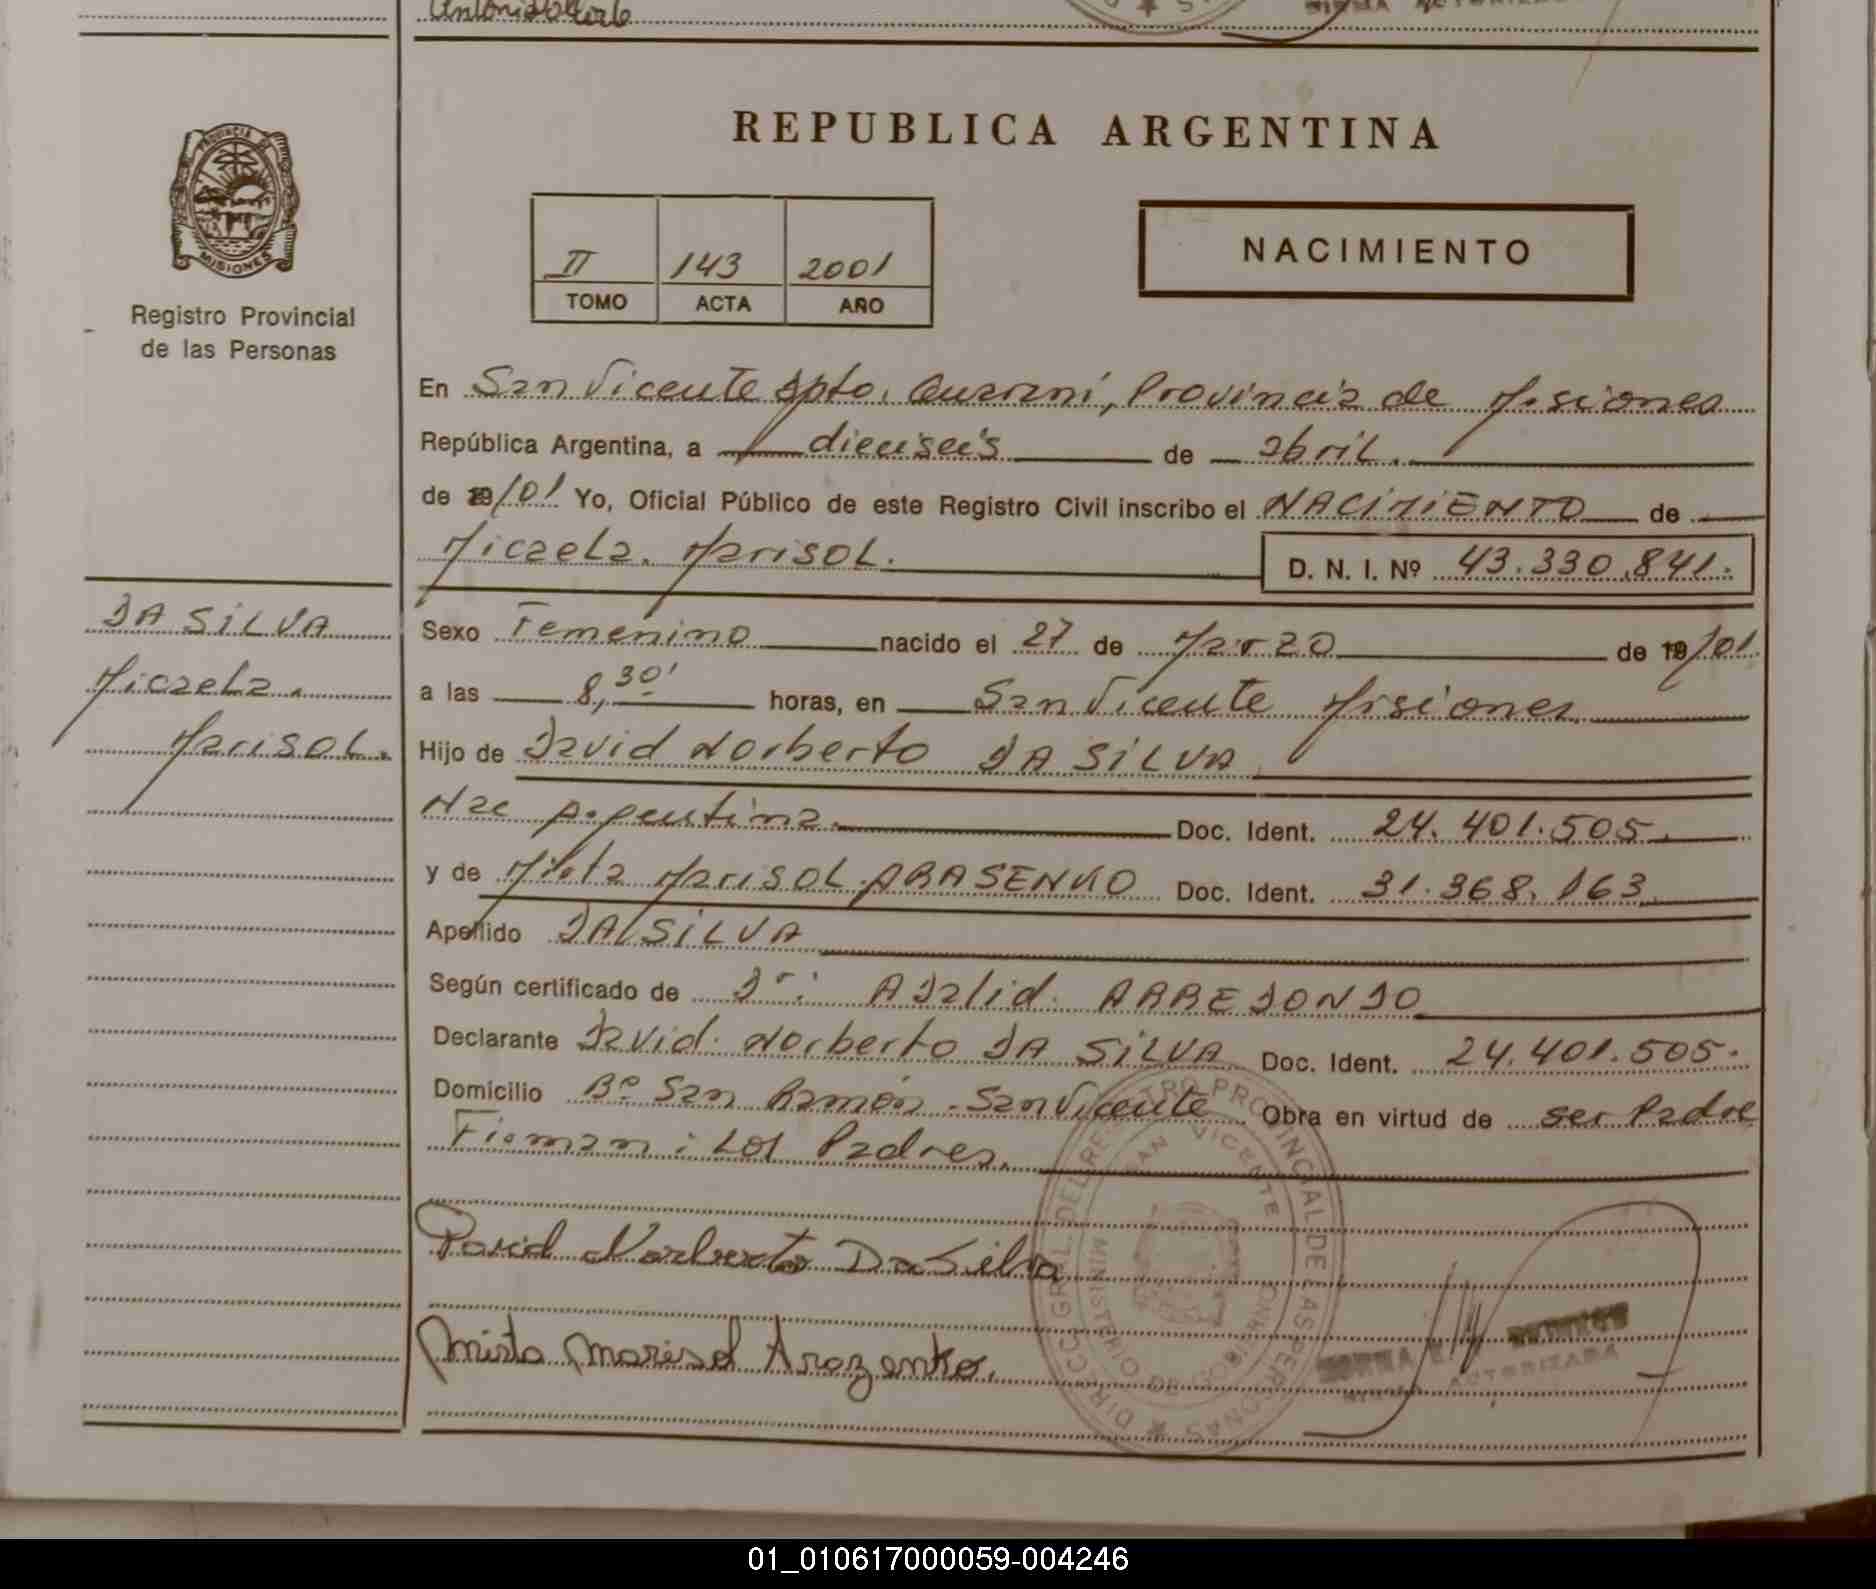 REPUBLICA ARGENTINA
PROVINCIA DE
MISIONES
Registro Provincial
de las Personas
II 143 2001
TOMO ACTA AÑO
NACIMIENTO
En San Vicente Dpto. Guaraní, Provincia de Misiones
República Argentina, a dieciseis de abril.
de 19/01 Yo, Oficial Público de este Registro Civil inscribo el NACIMIENTO de
Micaela. Marisol. D. N. I. Nº 43.330.841.
DA SILVA
Micaela.
Marisol.
Sexo Femenino nacido el 27 de Marzo de 19/01
a las 8,30' horas, en San Vicente Misiones
Hijo de David Norberto DA SILVA
Nac Argentina. Doc. Ident. 24.401.505.
y de Mirta Marisol ARASENKO Doc. Ident. 31.368.163
Apellido DA SILVA
Según certificado de Dr. Adalid. ARREDONDO
Declarante David. Norberto DA SILVA Doc. Ident. 24.401.505.
Domicilio Bº San Ramón - San Vicente Obra en virtud de ser Padre
Firman: Los Padres.
David Norberto Da Silva
Mirta Marisol Arozenko.
DIRECC. GRAL. DEL REGISTRO PROVINCIAL DE LAS PERSONAS
SAN VICENTE
MINISTERIO DE GOBIERNO
NORMA
FIRMA AUTORIZADA
01_010617000059-004246